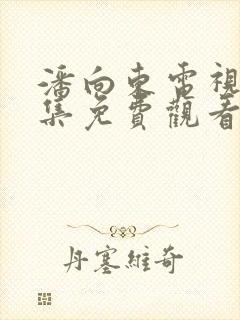 潘向東電視
集免費觀看
丹塞維奇